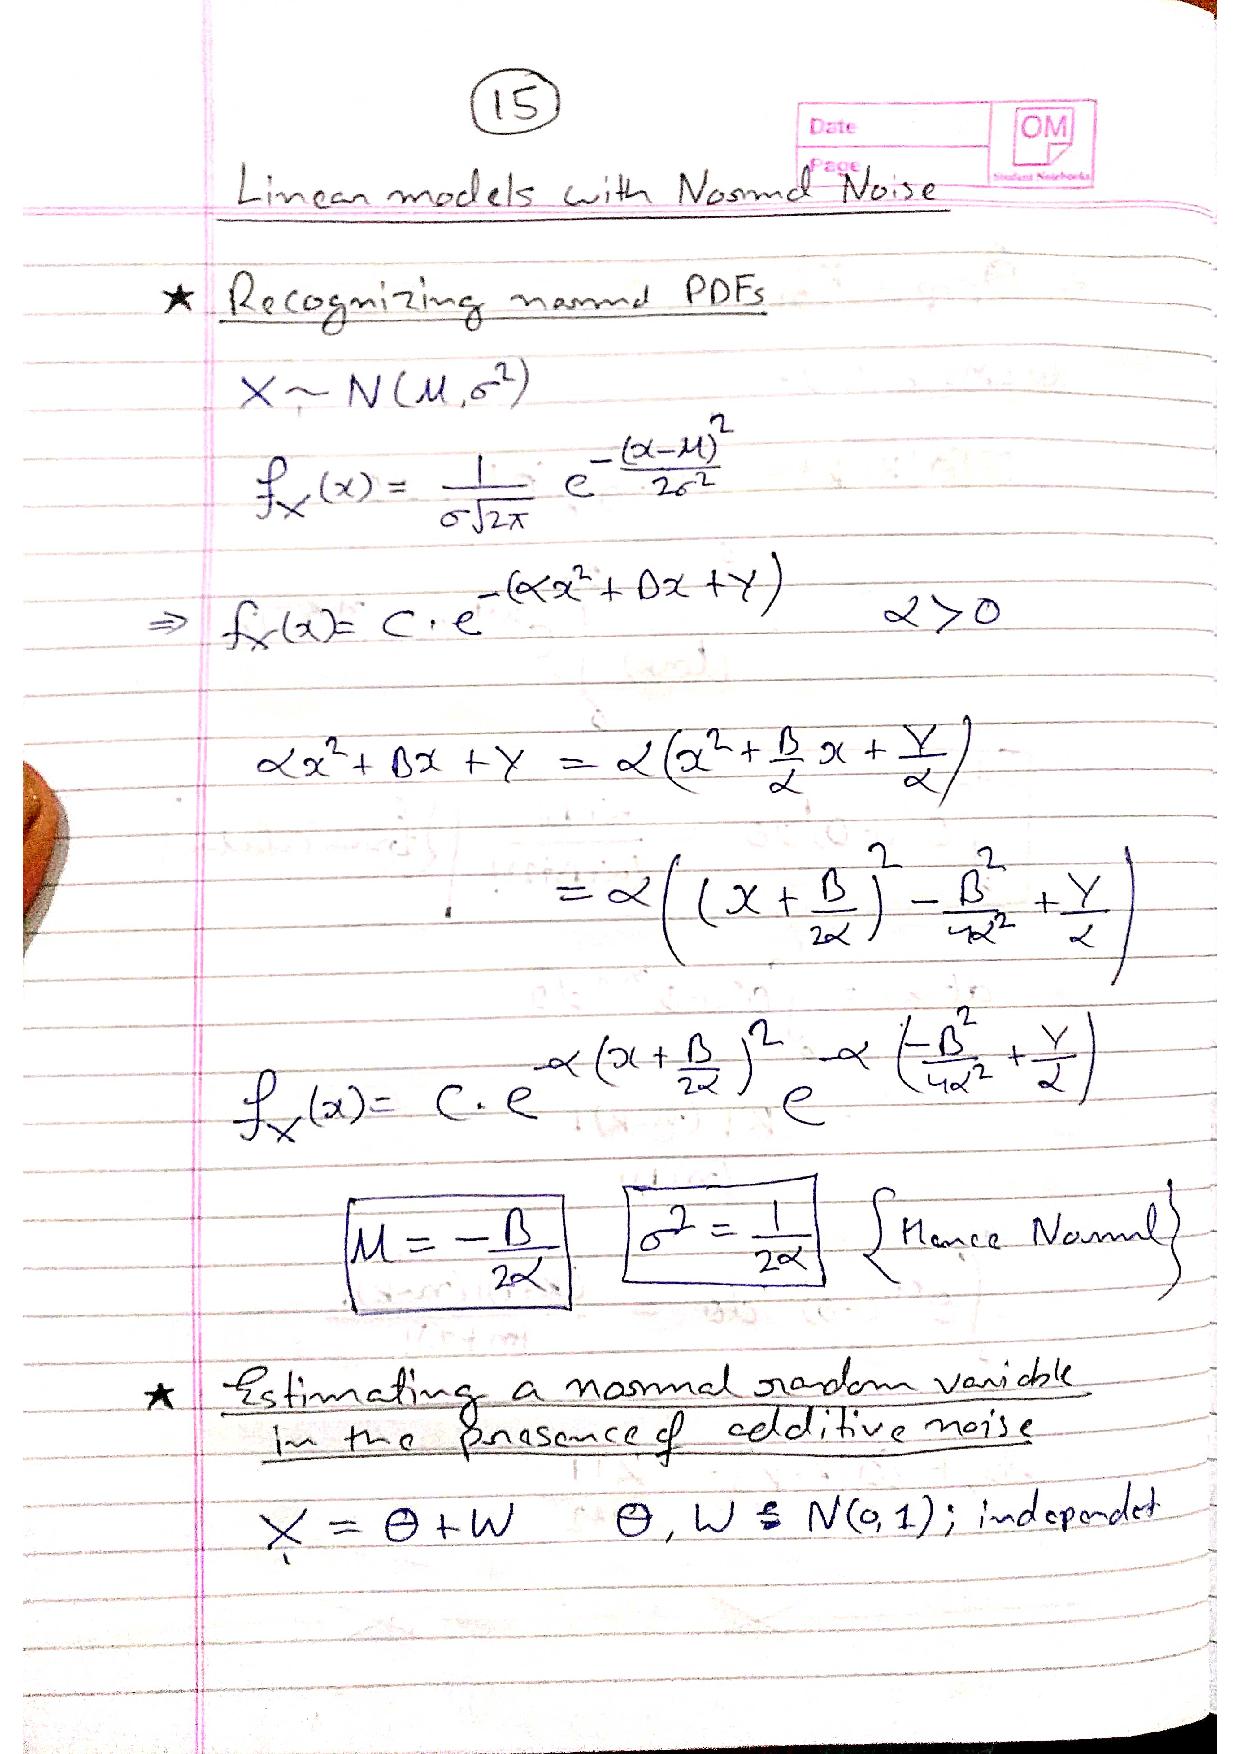 15
Date
OM
Page
Student Notebooks
Linear models with Normal Noise
★ Recognizing normal PDFs
X ~ N(μ, σ²)
f_X(x) = 1/(σ√2π) e^(-(x-μ)²/2σ²)
⇒ f_X(x) = c · e^-(αx² + βx + γ)    α > 0
αx² + βx + γ = α(x² + β/α x + γ/α)
= α((x + β/2α)² - β²/4α² + γ/α)
f_X(x) = c · e^-α(x + β/2α)² e^-α(-β²/4α² + γ/α)
μ = -β/2α    σ² = 1/2α    {Hence Normal}
★ Estimating a normal random variable
in the presence of additive noise
X = Θ + W    Θ, W : N(0, 1) ; independet